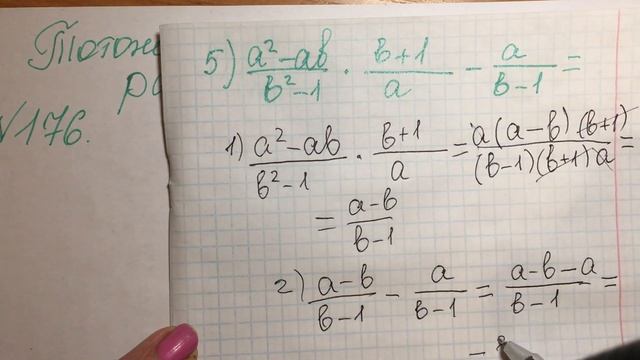 Тотож
ра
№176.
5) (a² - ab)/(b² - 1) · (b + 1)/a - a/(b - 1) =
1) (a² - ab)/(b² - 1) · (b + 1)/a = (a(a - b)(b + 1))/((b - 1)(b + 1)a) =
= (a - b)/(b - 1)
2) (a - b)/(b - 1) - a/(b - 1) = (a - b - a)/(b - 1) =